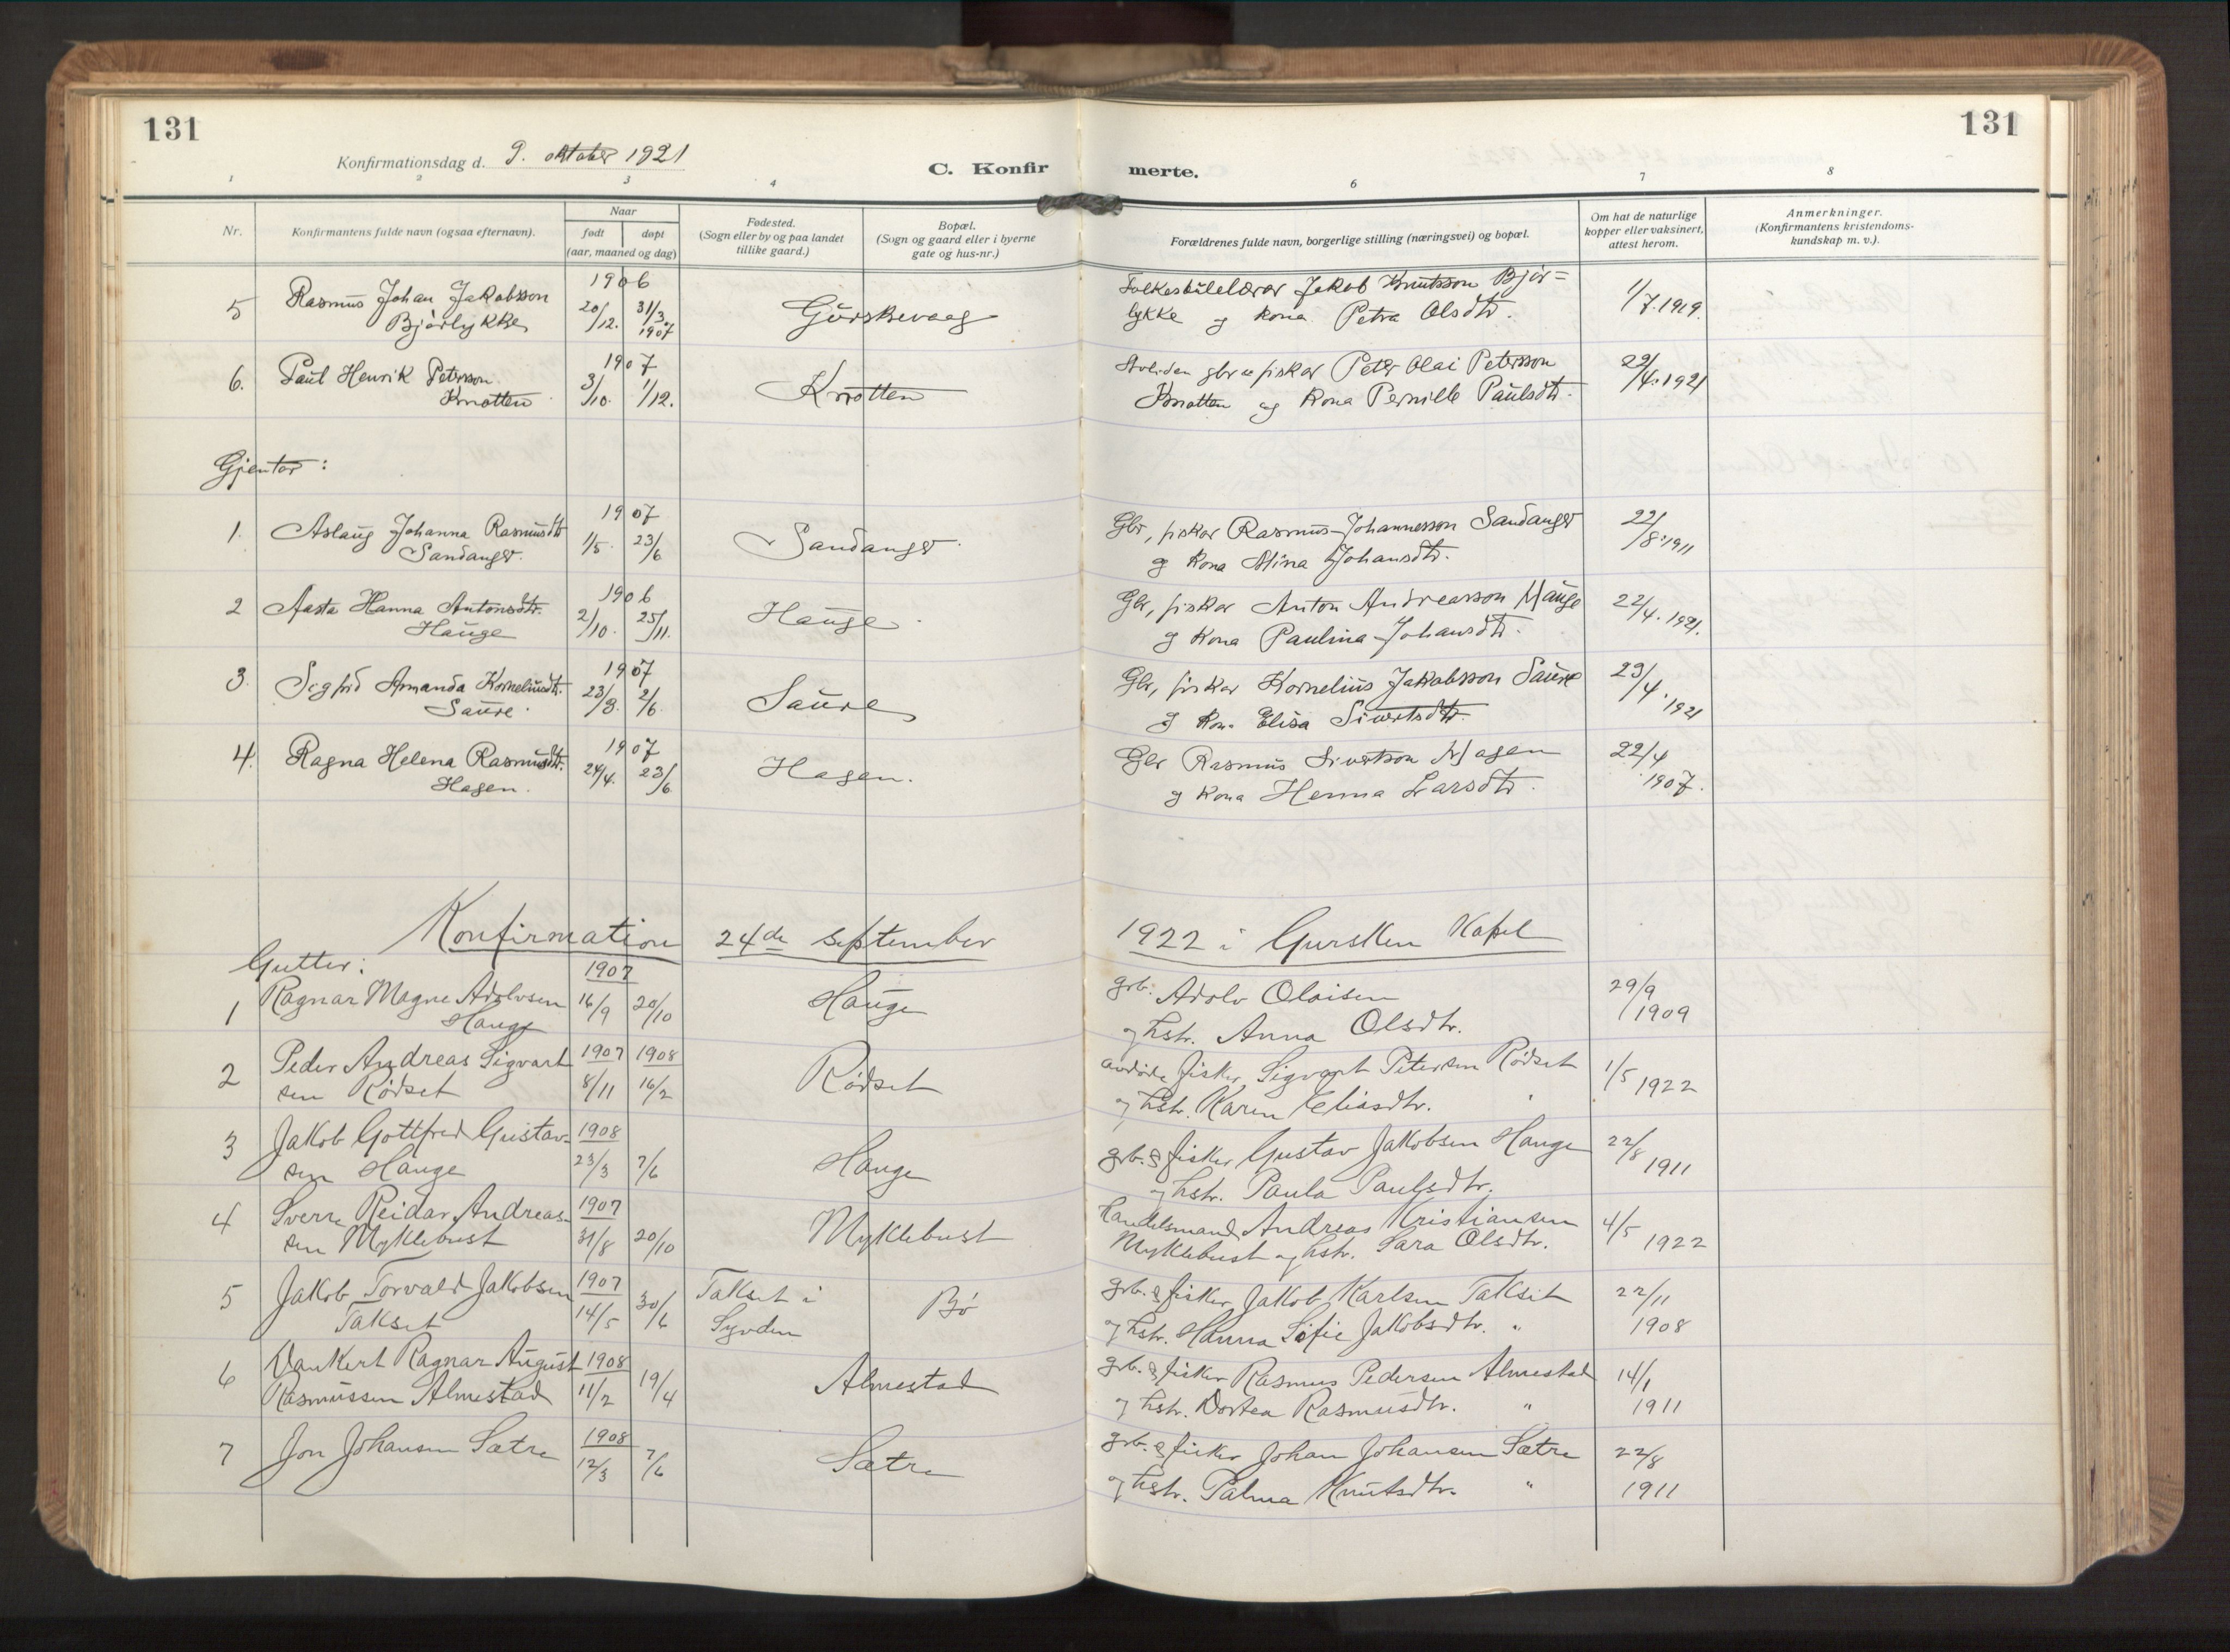 131
131
Konfirmationsdag d. 9. oktober 1921
C. Konfir
merte.
1
2
3
4
6
7
8
Nr.
Konfirmantens fulde navn (ogsaa efternavn).
Naar
født
døpt
(aar, maaned og dag)
Fødested.
(Sogn eller by og paa landet
tillike gaard.)
Bopæl.
(Sogn og gaard eller i byerne
gate og hus-nr.)
Forældrenes fulde navn, borgerlige stilling (næringsvei) og bopæl.
Om hat de naturlige
kopper eller vaksinert,
attest herom.
Anmerkninger.
(Konfirmantens kristendoms-
kundskap m. v.).
1906
5 Rasmus Johan Jakobsson 20/12. 31/3. Gurskevaag Folkeskulelærar Jakob Knutsson Bjør= 1/7.1919.
Bjørlykke 1907 lykke og kona Petra Olsdtr.
1907
6. Paul Henrik Petersson 3/10. 1/12. Knotten gbr & fiskar Peter Olai Petersson 29/4.1921
Knotten Knotten og kona Pernille Paulsdtr.
Gjentor:
1907
1. Aslaug Johanna Rasmusdtr 1/5. 23/6 Sandanger. Gbr, fiskar Rasmus Johannesson Sandanger 22/8.1911
Sandanger. og kona Alina Johansdtr.
1906
2 Aasta Hanna Antonsdtr. 2/10. 25/11. Hauge. Gbr, fiskar Anton Andreasson Hauge 22/4.1921.
Hauge og kona Paulina Johansdtr.
1907
3. Sigfrid Amanda Kornelius­dtr. 23/3. 2/6. Saure Gbr, fiskar Kornelius Jakobsson Saure 23/4.1921
Saure. og kona Elisa Sivertsdtr.
1907
4. Ragna Helena Rasmusdtr. 24/4. 23/6. Hagen. Gbr Rasmus Sivertson Hagen 22/4
Hagen. og kona Henna Larsdtr. 1907.
Konfirmation 24de september 1922 i Gursken Kapel
Gutter:
1907
1 Ragnar Magne Adolvsen 16/9 20/10 Hauge grb. Adolv Olaisen 29/9
Hauge og hstr. Anna Olsdtr. 1909
2 Peder Andreas Sigvart 1907 1908 Rødset avdøde fisker Sigvart Petersen Rødset 1/5 1922
sen Rødset 8/11 16/2 og hstr. Karen Eliasdtr. "
3 Jakob Gottfred Gustav- 1908 Hauge grb. & fisker Gustav Jakobsen Hauge 22/8 1911
sen Hauge 23/3 7/6 og hstr. Paula Paulsdtr.
4 Sverre Reidar Andreas- 1907 Myklebust handelsmand Andreas Kristiansen 4/5 1922
sen Myklebust 31/8 20/10 Myklebust og hstr. Sara Olsdtr.
5 Jakob Torvald Jakobsen 1907 Takset i Bø grb. & fisker Jakob Karlsen Takset 22/11
Takset 14/5 30/6 Syvden og hstr. Hanna Sofie Jakobsdtr. " 1908
6 Vankert Ragnar August 1908 Almestad grb. & fisker Rasmus Pedersen Almestad 14/1
Rasmussen Almestad 11/2 19/4 og hstr. Dortea Rasmusdtr. " 1911
7 Jon Johansen Sætre 1908 Sætre grb. & fisker Johan Johansen Sætre 22/8
12/3 7/6 og hstr. Palma Knutsdtr. " 1911